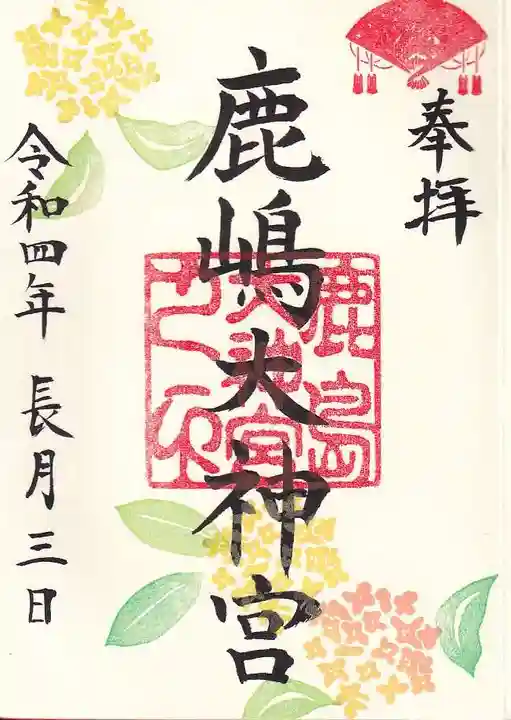 奉拝
鹿嶋大神宮
鹿島
大神宮
之印
令和四年 長月三日